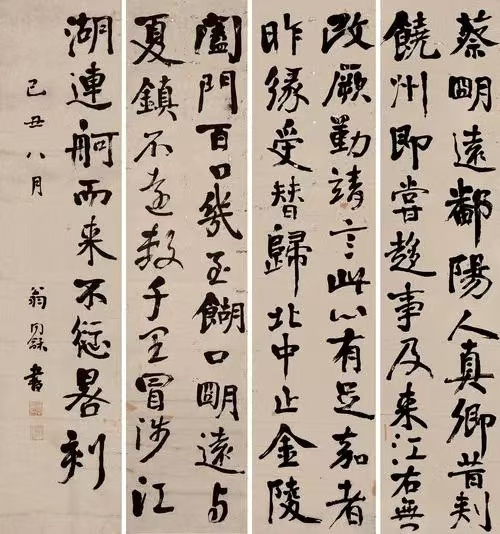 蔡明遠鄱陽人真卿昔刺
饒州即嘗趨事及来江右無
改厥勤靖言此心有足嘉者
昨緣受替歸北中止金陵
闔門百口幾至餬口明遠与
夏鎮不遠數千里冒涉江
湖連舸而来不愆晷刻
己丑八月
翁同龢書